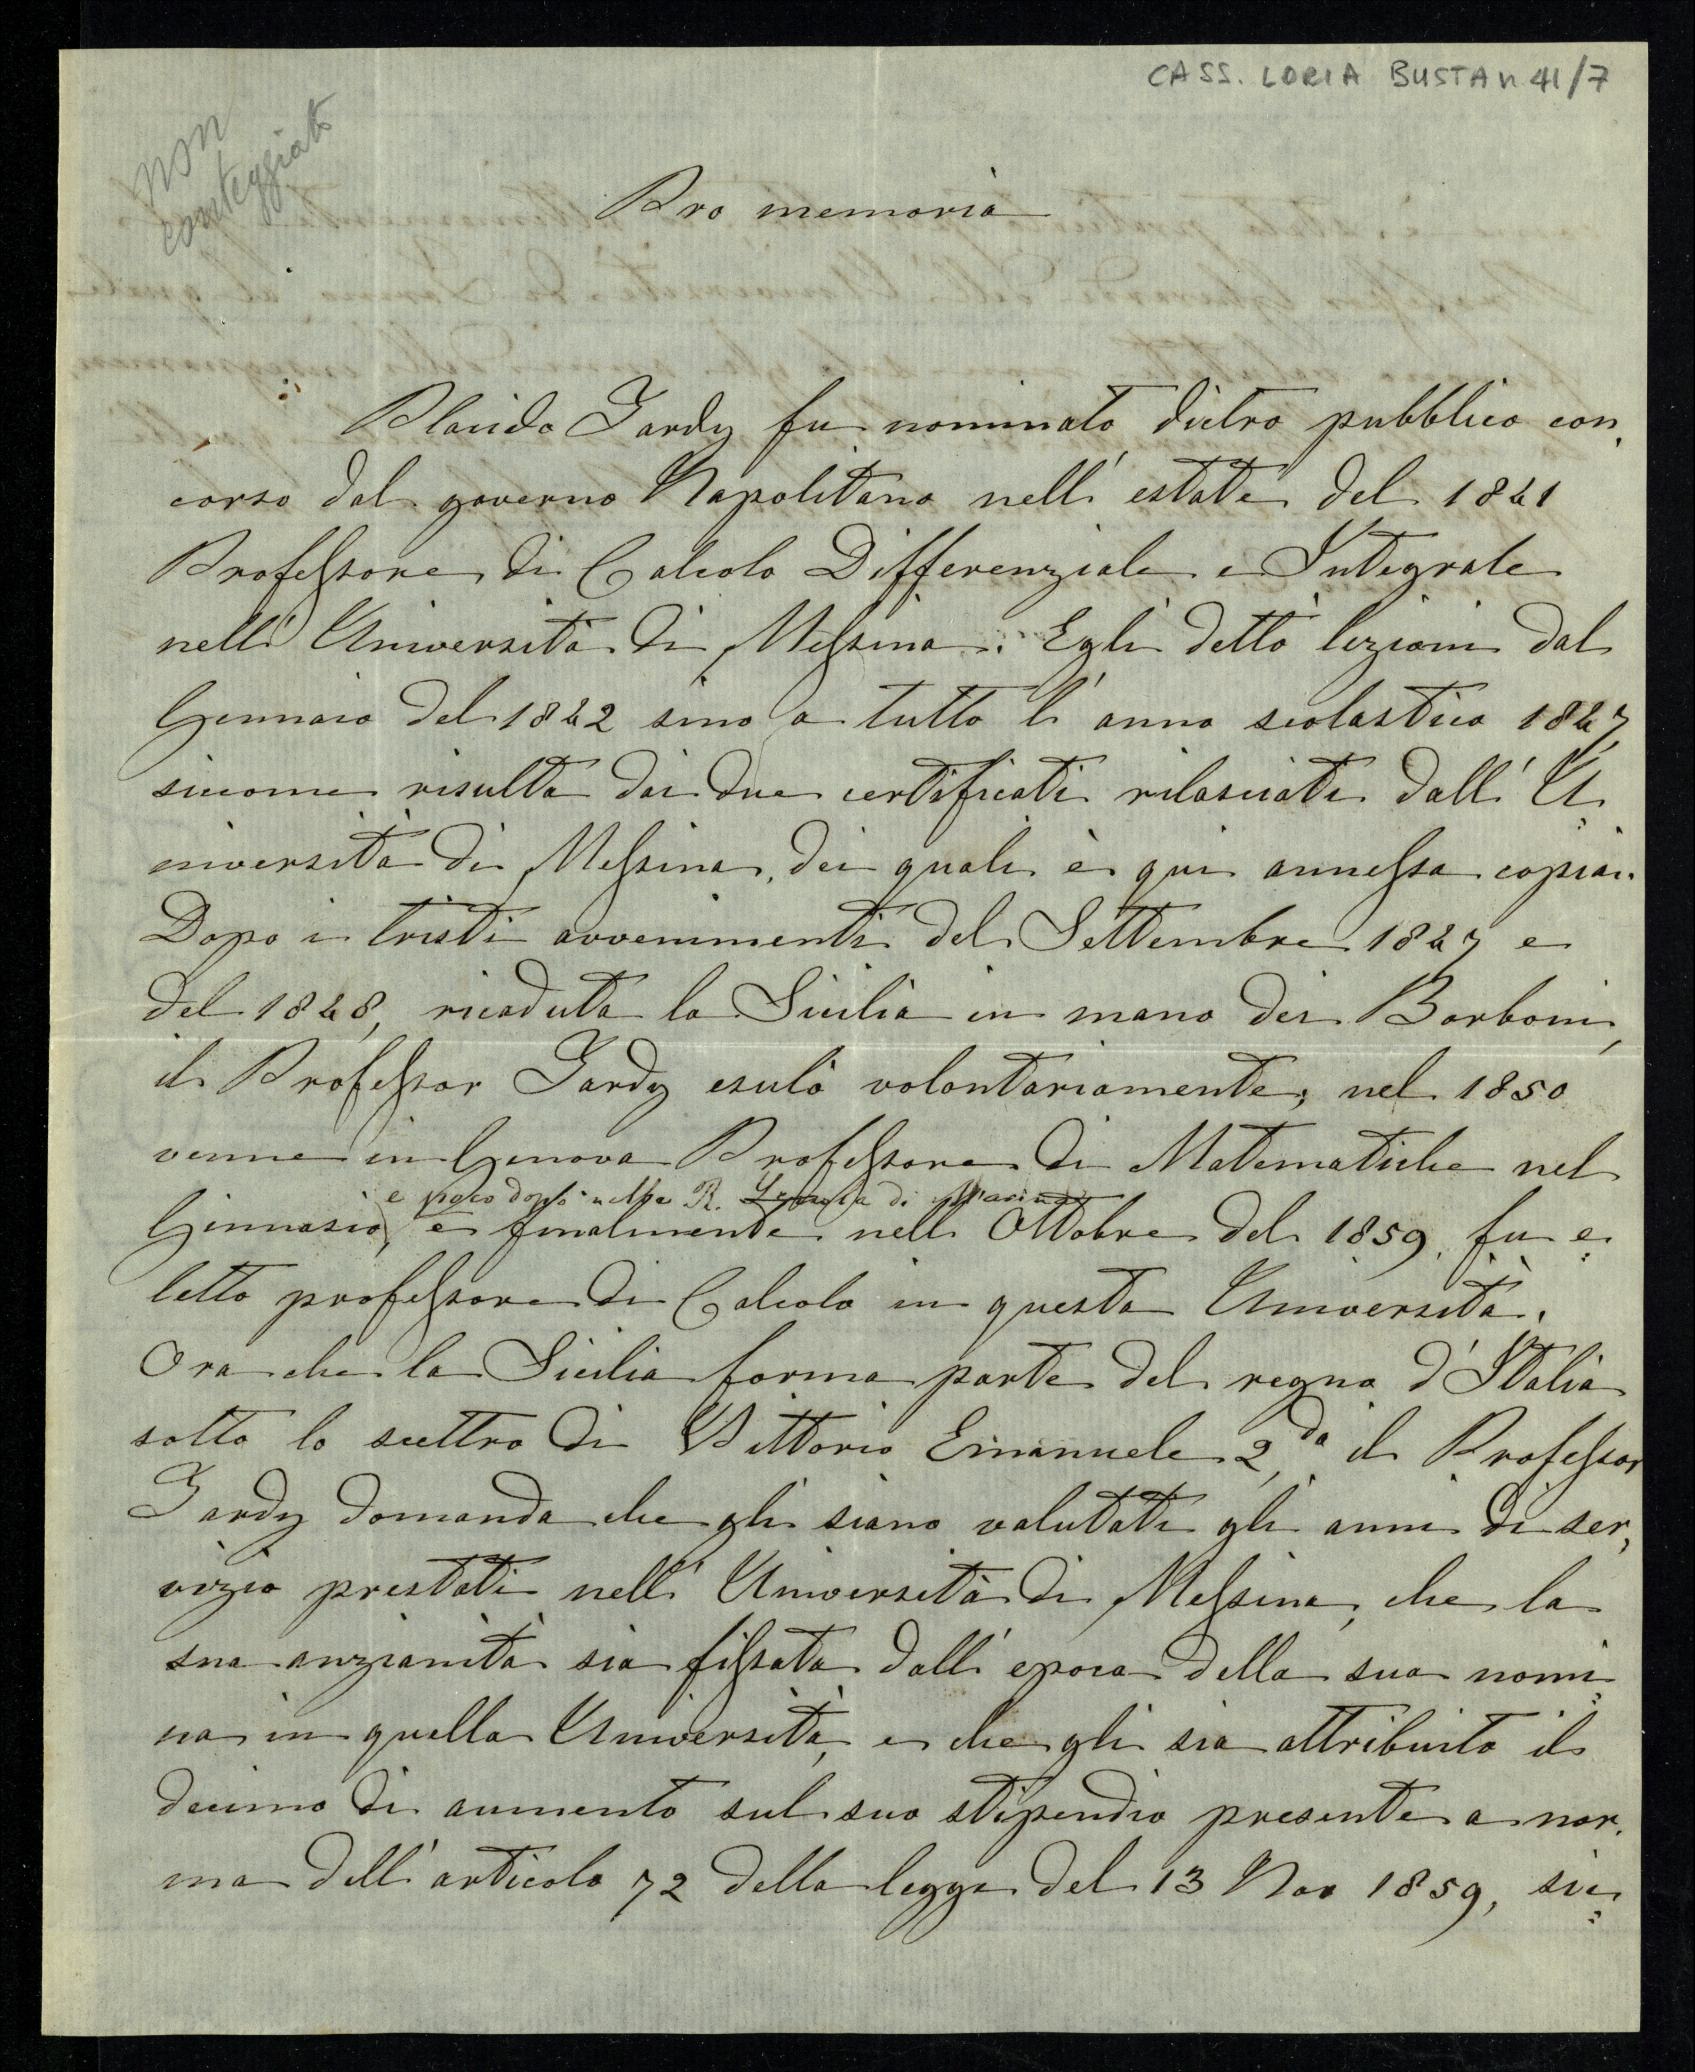 CASS. LORIA BUSTA n. 41/7
non
conteggiato
Pro memoria
Placido Tardy fu nominato, dietro pubblico con,
corso dal governo Napolitano nell' estate del 1841
Professore di Calcolo Differenziale e Integrale
nell' Università di Messina. Egli dettò lezioni dal
Gennaio del 1842 sino a tutto l' anno scolastico 1847,
siccome risulta dai due certificati rilasciati dall' U=
niversità di Messina, dei quali è qui annessa copia.
Dopo i tristi avvenimenti del Settembre 1847 e
del 1848, ricaduta la Sicilia in mano dei Borboni,
il Professor Tardy esulò volontariamente; nel 1850
venne in Genova Professore di Matematiche nel
e poco dopo nella R. Scuola di Marina
Ginnasio, e finalmente nell' Ottobre del 1859, fu e=
letto professore di Calcolo in questa Università.
Ora che la Sicilia forma parte del regno d' Italia
sotto lo scettro di Vittorio Emanuele 2.do, il Professor
Tardy domanda che gli siano valutati gli anni di ser,
vizio prestati nell' Università di Messina, che la
sua anzianità sia fissata dall' epoca della sua nomi=
na in quella Università, e che gli sia attribuito il
decimo di aumento sul suo stipendio presente a nor,
ma dell' articolo 72 della legge del 13 Nov 1859, sic=